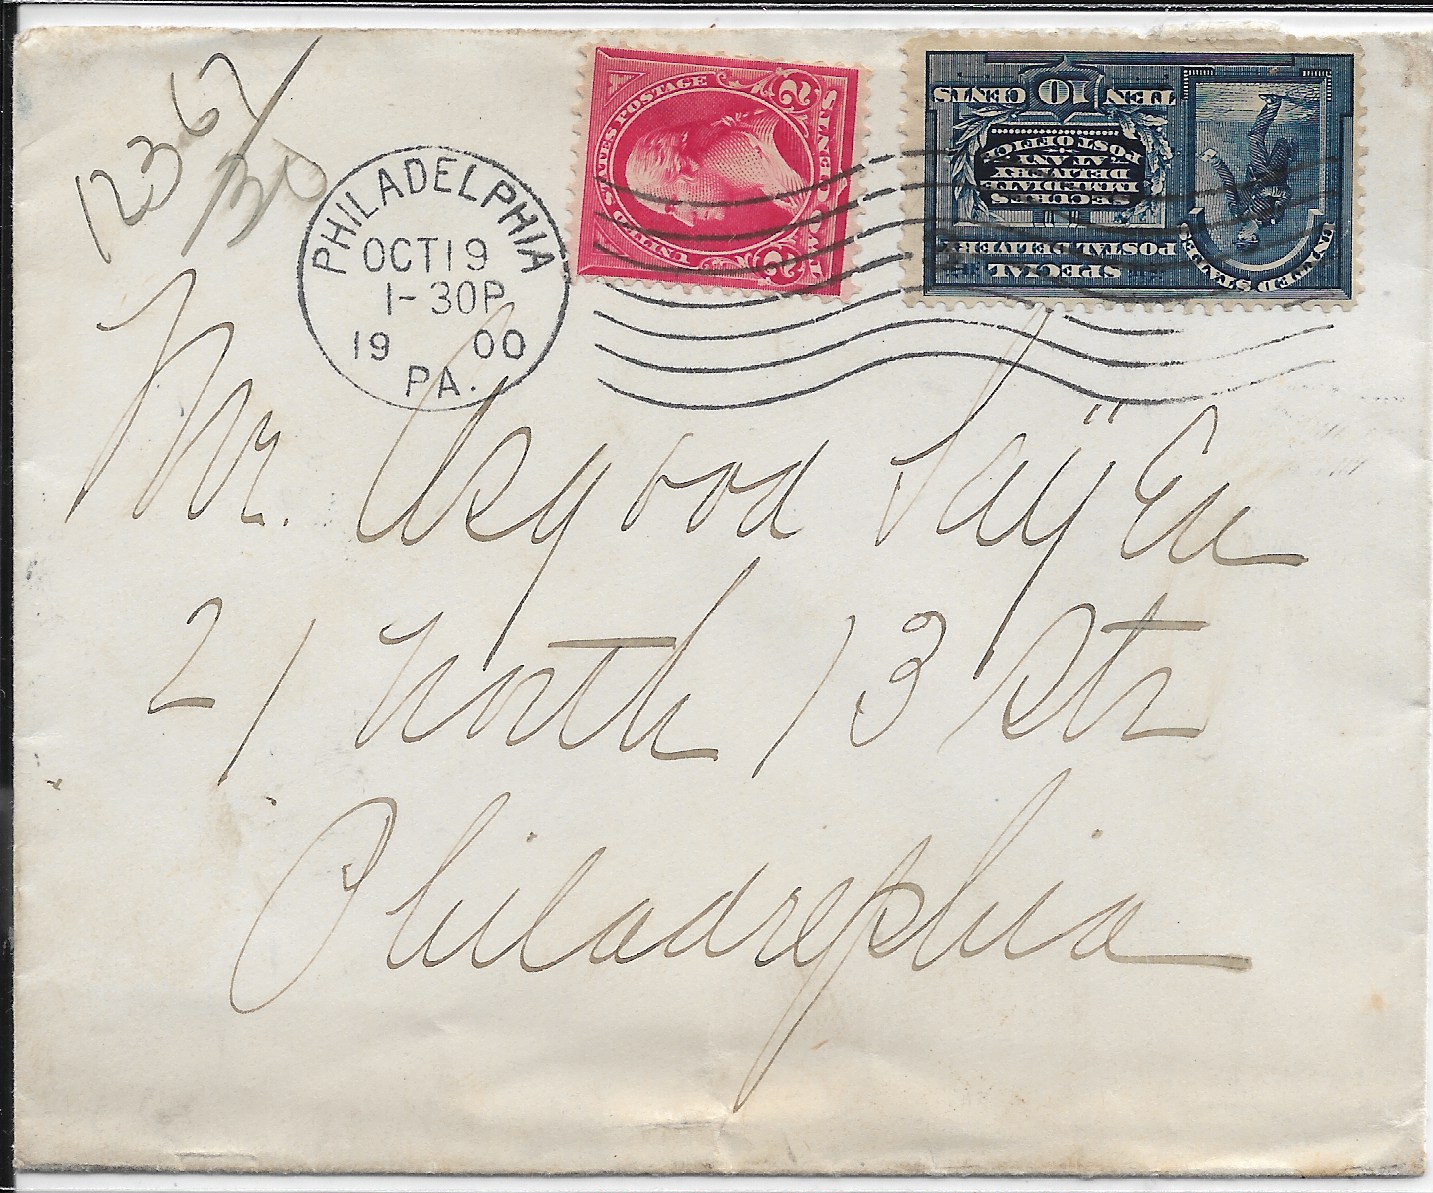 12367/30
PHILADELPHIA
OCT 19
1-30P
1900
PA.
UNITED STATES POSTAGE
2 2
UNITED STATES
SPECIAL
POSTAL DELIVERY
SECURES
IMMEDIATE
DELIVERY
AT ANY
POST OFFICE
TEN 10 CENTS
Mr. Osgood Sayen
21 North 13 Str
Philadelphia